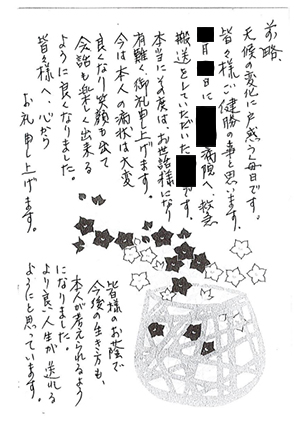 前略、
天候の変化に戸惑う毎日です。
皆々様ご健勝の事と思います。
月 日に 病院へ、救急
搬送をしていただいた です。
本当にその度は、お世話様になり
有難く、御礼申し上げます。
今は本人の病状は大変
良くなり、笑顔も出て
会話も楽しく出来る
ように良くなりました。
皆々様へ、心から
お礼申し上げます。
皆様のお蔭で
今後の生き方も、
本人が考えられるよう
になりました。
より良い人生が送れる
ようにと思っています。